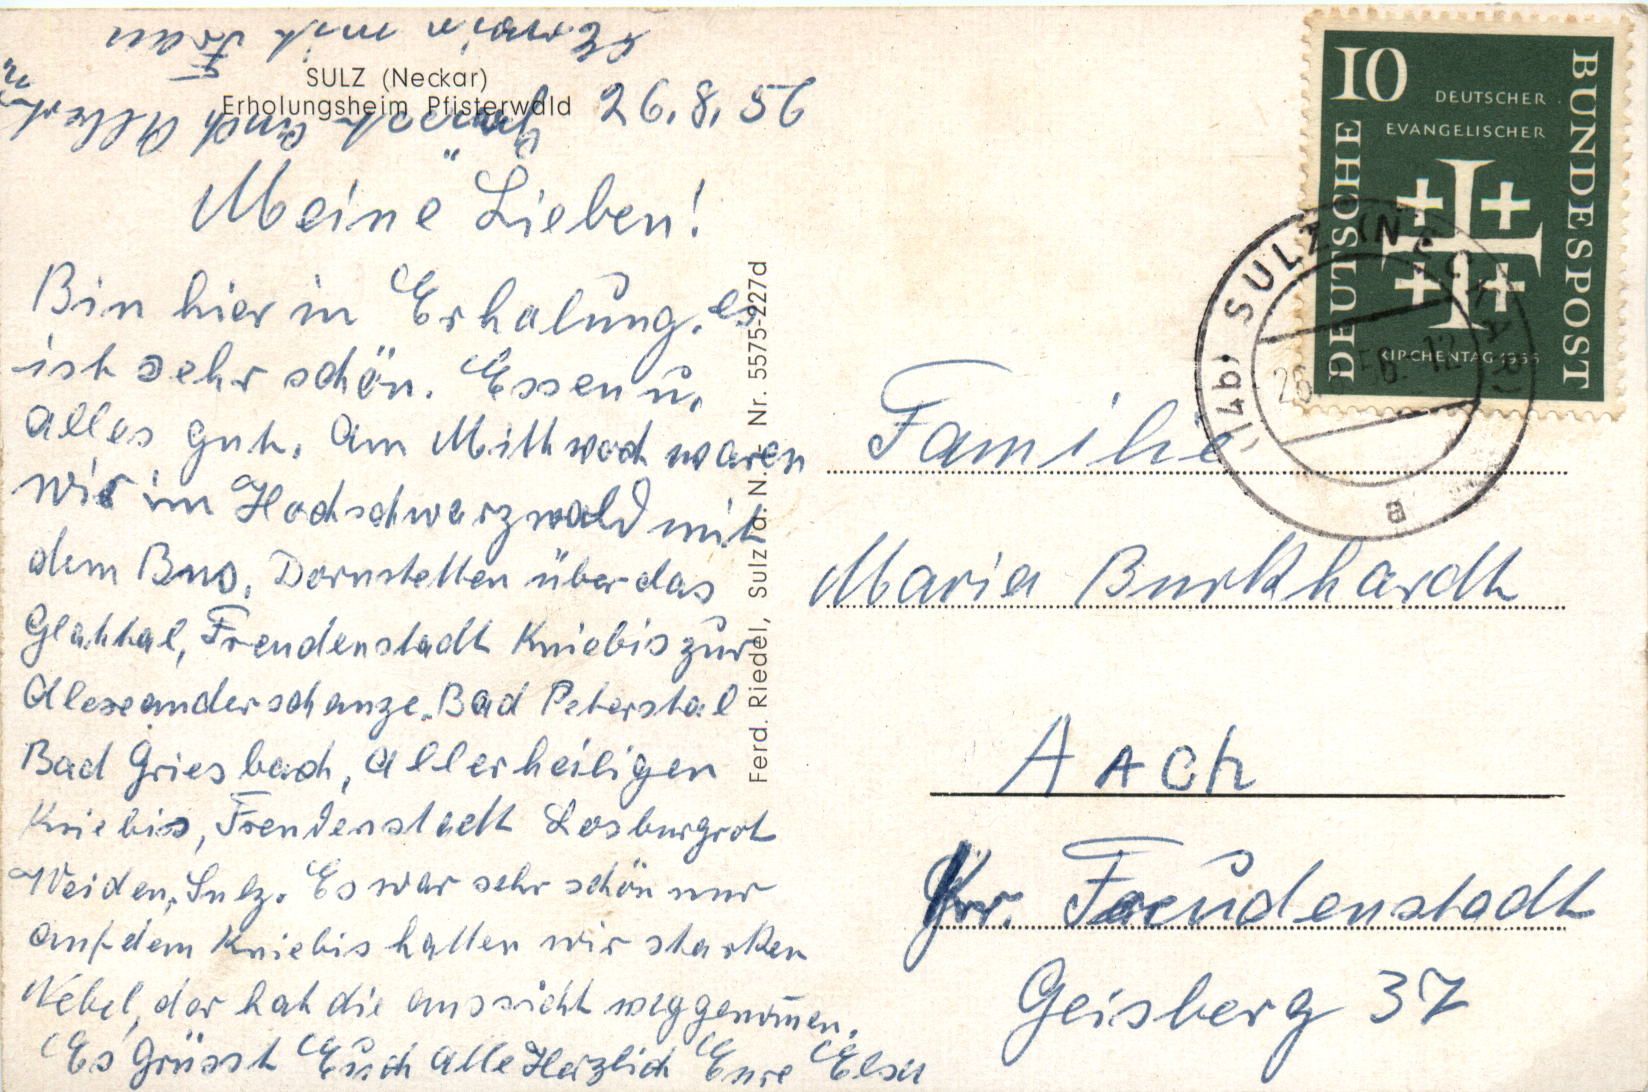 SULZ (Neckar)
Erholungsheim Pfisterwald
26.8.56
Meine Lieben!
Bin hier in Erholung. es
ist sehr schön. Essen u.
alles gut. Am Mittwoch waren
wir im Hochschwarzwald mit
dem Bus. Dornstetten über das
Glattal, Freudenstadt Kniebis zur
Alexanderschanze. Bad Peterstal
Bad Griesbach, Allerheiligen
Kniebis, Freudenstadt Losburgrot
Weiden, Sulz. Es war sehr schön nur
auf dem Kniebis hatten wir starken
Nebel, der hat die aussicht weggenom̅en.
Es Grüsst Euch Alle Herzlich Eure Elsa
Grüsst auch
Erwin mit Frau
Ferd. Riedel, Sulz a. N. - Nr. 5575-227d
10
DEUTSCHER
EVANGELISCHER
KIRCHENTAG 1956
DEUTSCHE
BUNDESPOST
(14b) SULZ (NECKAR)
26.8.56.-12
a
Familie
Maria Burkhardt
Aach
Kr. Freudenstadt
Geisberg 37